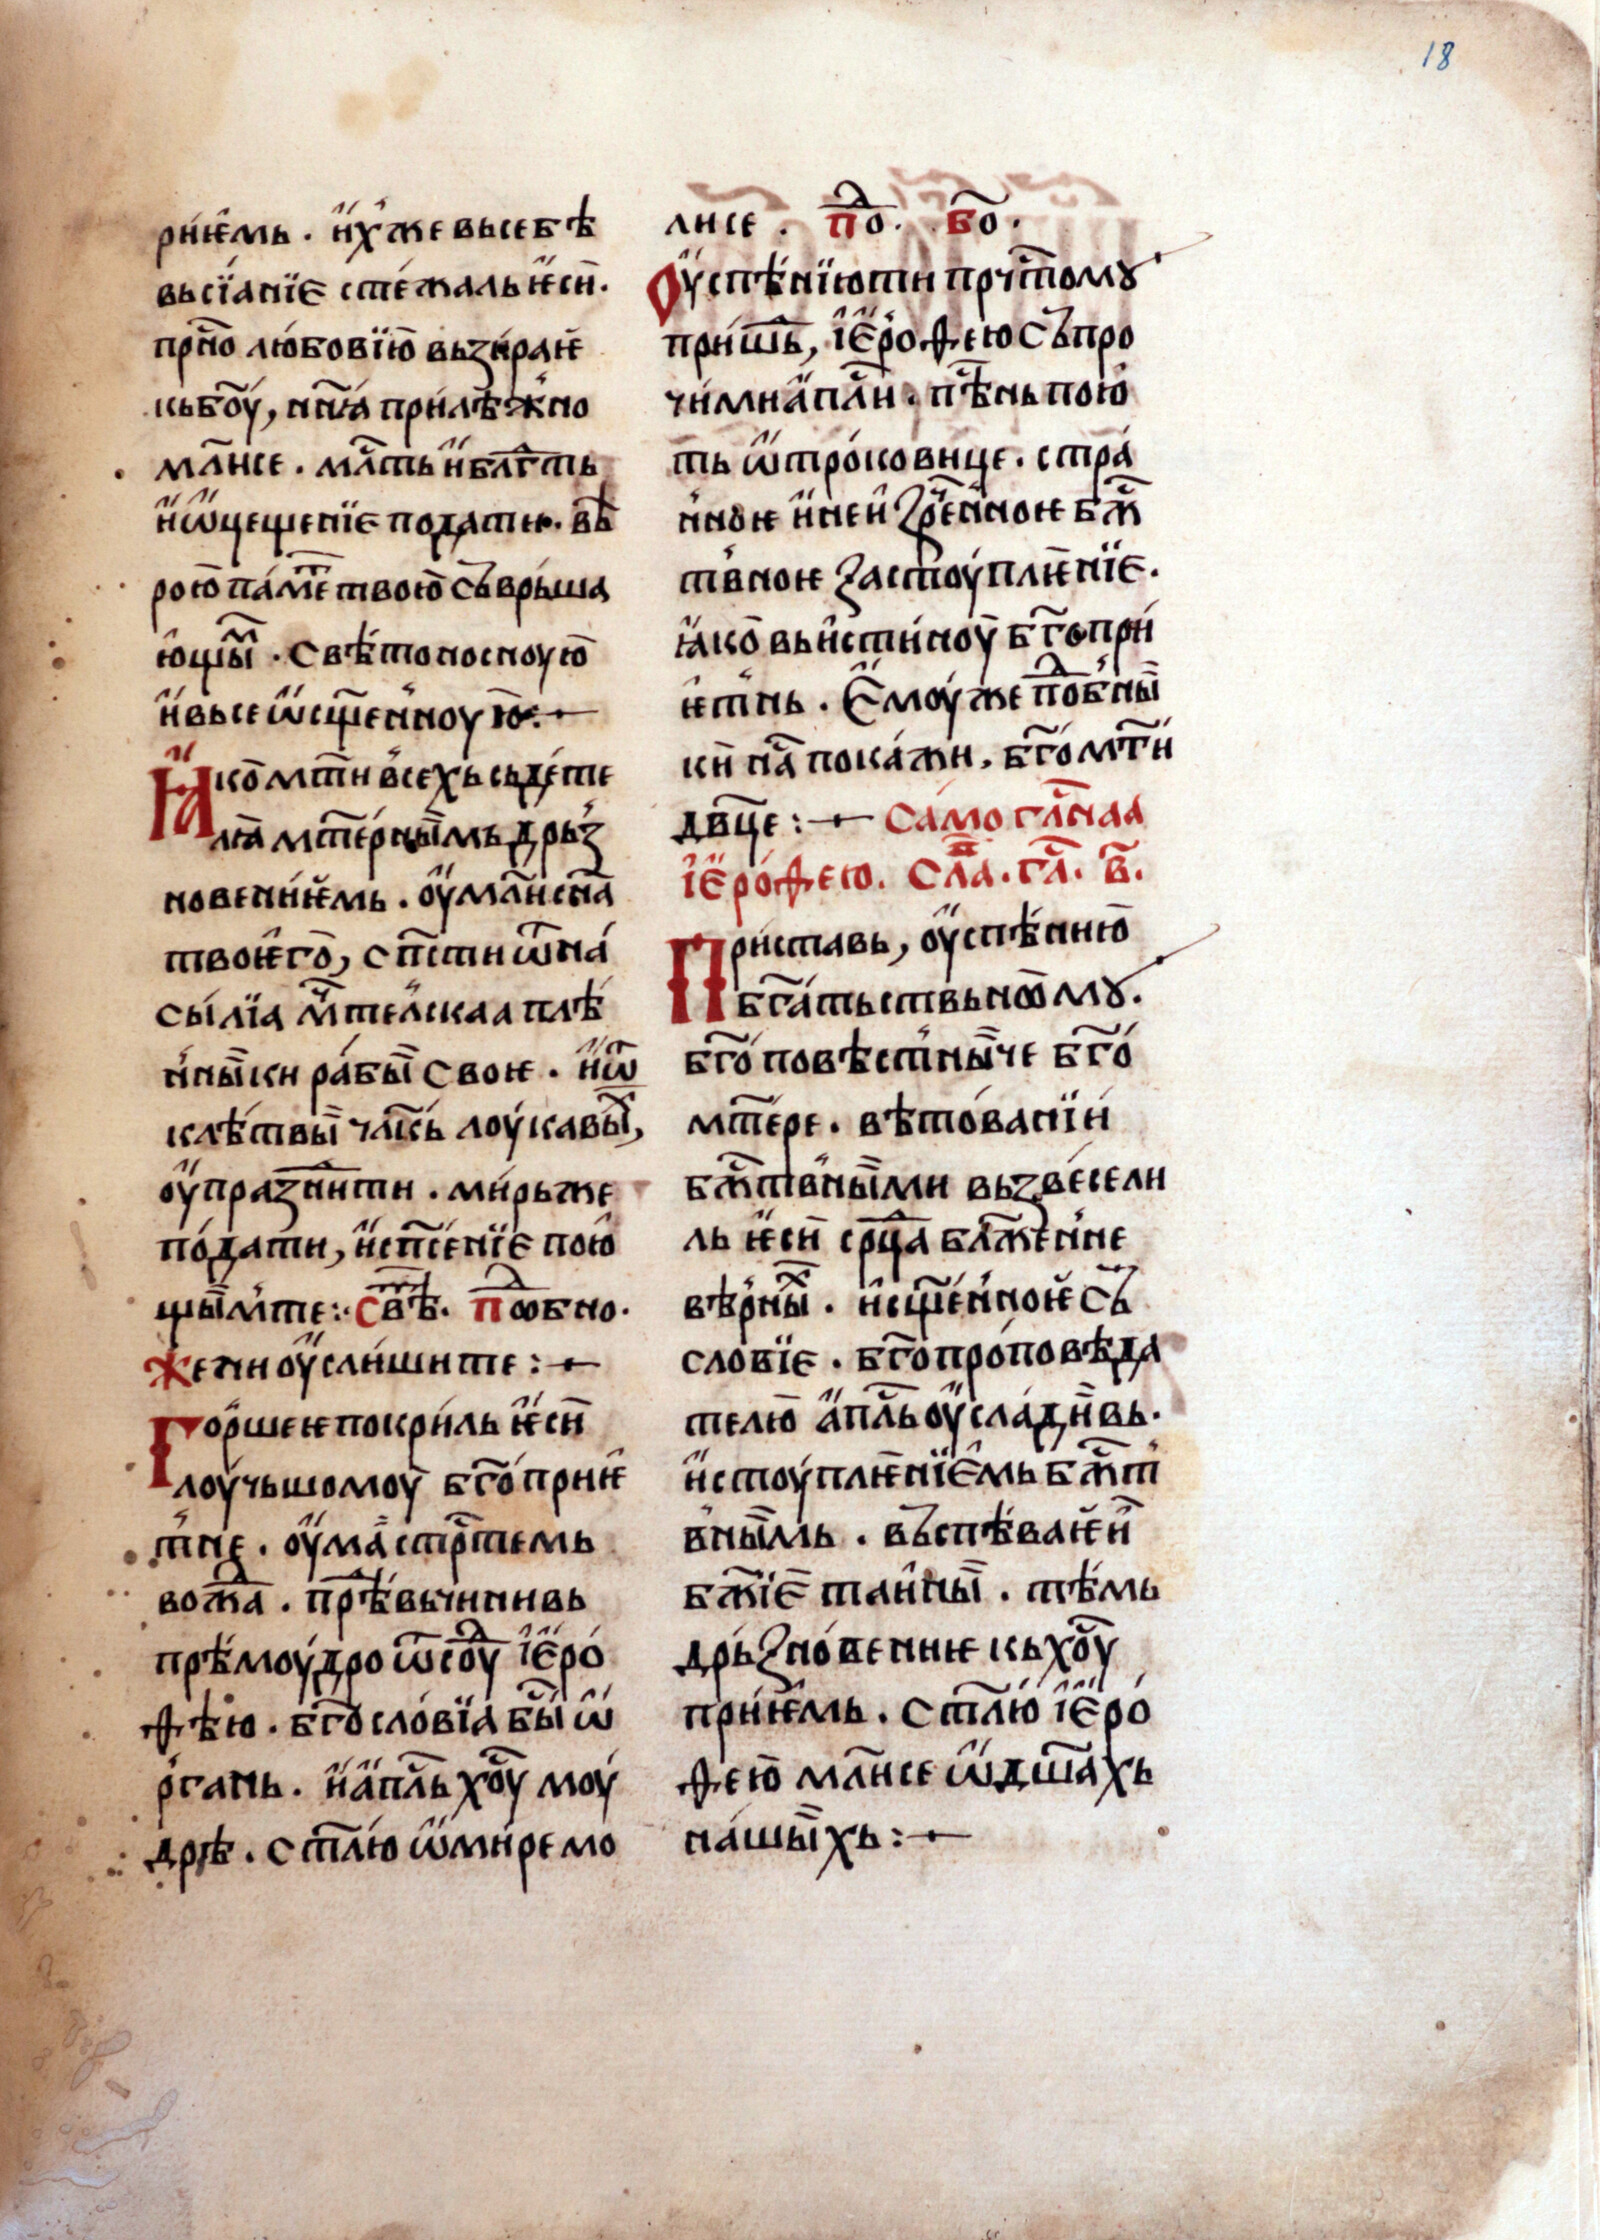 18
рнѥмь . ихже вьсебѣ
вьсїанїѥ стежаль ѥсн.
прⷭ҇но любовїю вьзнраѥ
кьбо҃у, нн҃ꙗ прнлѣжно
мл҃нсе . млⷭ҇ть нблгⷣть
нѡцещенїѥ податн. вѣ
рою памеⷮ твою сьврьша
ющыⷨ . свѣтоносноую
нвьсе ѡсщ҃енноую:
Ꙗкомт҃н всехь сьдете
лꙗ мт҃ернымь дрьз
новеннѥмь . оумл҃нсн҃а
твоѥго, сп҃стн ѿна
сылїа мⷱ҇телскаа плѣ
нныкн рабы своѥ . нѿ
клѣтвы члⷱ҇кь лоукавыⷯ,
оупразннтн . мнрьже
податн, нсп҃сенїѥ пою
щымте: свⷮѣ. поⷣбно.
Женн оуслншнте :
Горшеѥ покрнль ѥсн
лоучьшомоу бг҃опрнѥ
тне . оума стрⷭ҇темь
вожⷣа . прѣⷣвьчннвь
прѣмоудро ѿсоуⷣ їѥро
ѳѣю . бг҃ословїа быⷭ҇ ѡ
рган̾ь . нап҃ль хо҃у моу
дрѣ . ст҃лю ѡмнре мо
лнсе . поⷣ. бо҃.
Оуспѣнїютн прчⷭ҇томꙋ
прншⷣь, їѥроѳею сьпро
чнмнап҃лн . пѣⷭ҇нь пою
ть ѡтроковнце . стра
нноѥ нненꙁреⷱ҇нноѥ бж҃
твноѥ застоуплѥнїѥ .
ꙗко вьнстнноу бг҃опрн
ѥтнь . ѥмоуже поⷣбны
кн на покажн, бг҃омт҃н
дв҃це : Само глⷭ҇наа
їѥроѳею. Слаⷡ . глⷭ҇. в҃.
Прнставь, оуспѣнню
бг҃атьствьнѡмꙋ.
бг҃оповѣстныче бг҃о
мт҃ере . вѣтованїн
бжⷭ҇твнымн вьзвеселн
ль ѥсн срⷣца блж҃енне
вѣрныⷯ . нсщ҃енноѥ сь
словїѥ . бг҃опроповѣда
телю ап҃ль оусладнвь.
нстоуплѥнїѥмь бжⷭ҇т
внымь . вьспѣваѥн
бж҃їѥ танны . тѣмь
дрьꙁновеннѥ кьхо҃у
прнѥмь . ст҃лю їѥро
ѳею мл҃нсе ѡдш҃ахь
нашыхь :